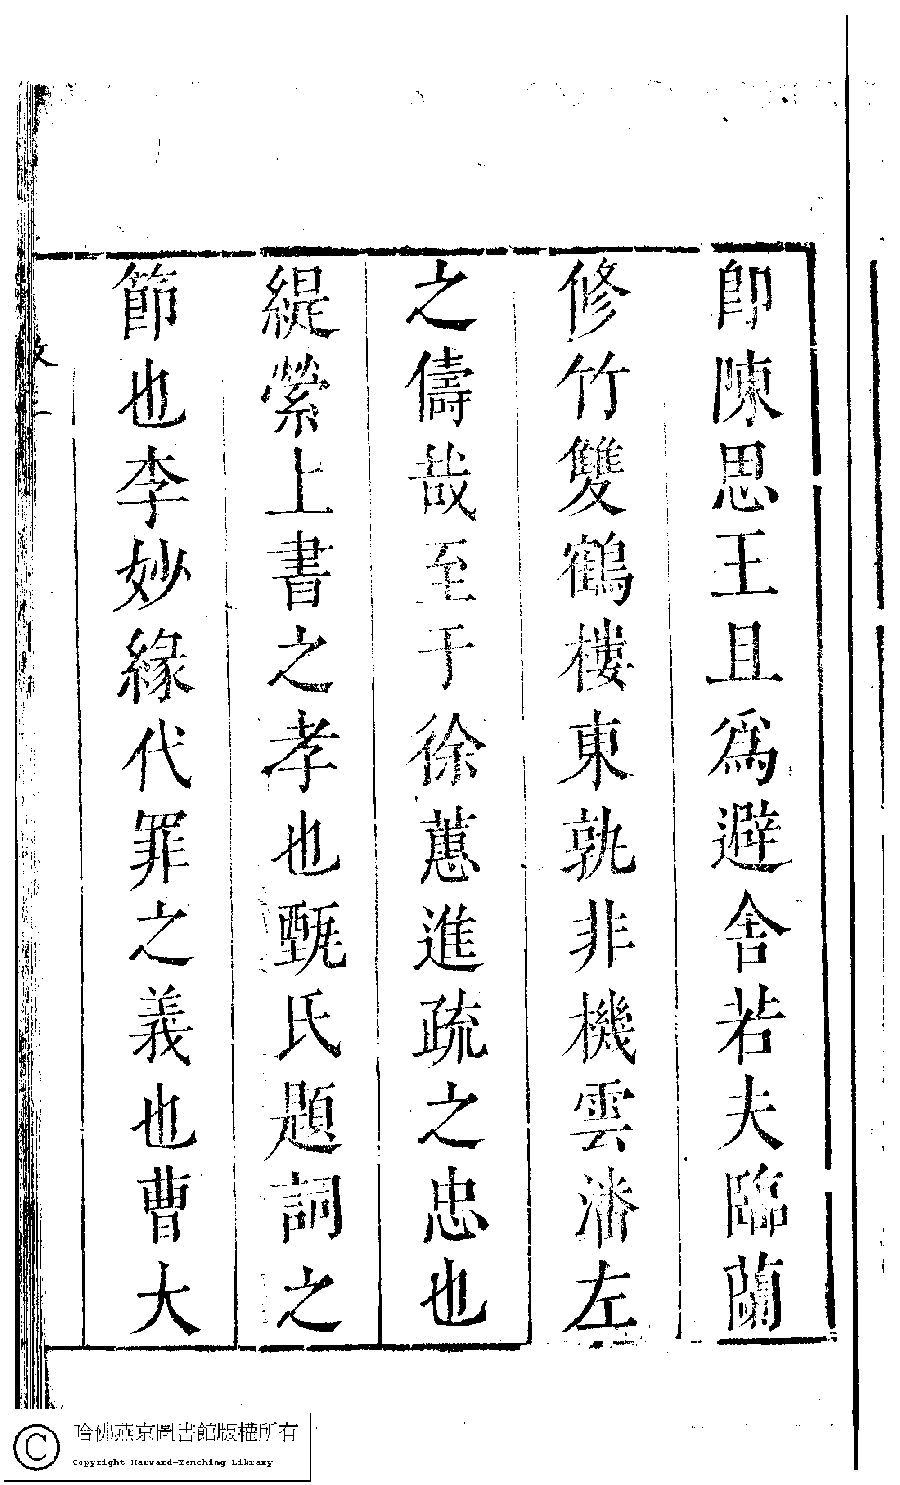 卽陳思王且爲避舍若夫臨蘭
修竹雙鶴樓東孰非機雲潘左
之儔哉至于徐蕙進疏之忠也
緹縈上書之孝也甄氏題詞之
節也李妙緣代罪之義也曹大
哈佛燕京圖書館版權所有
Copyright Harvard-Yenching Library